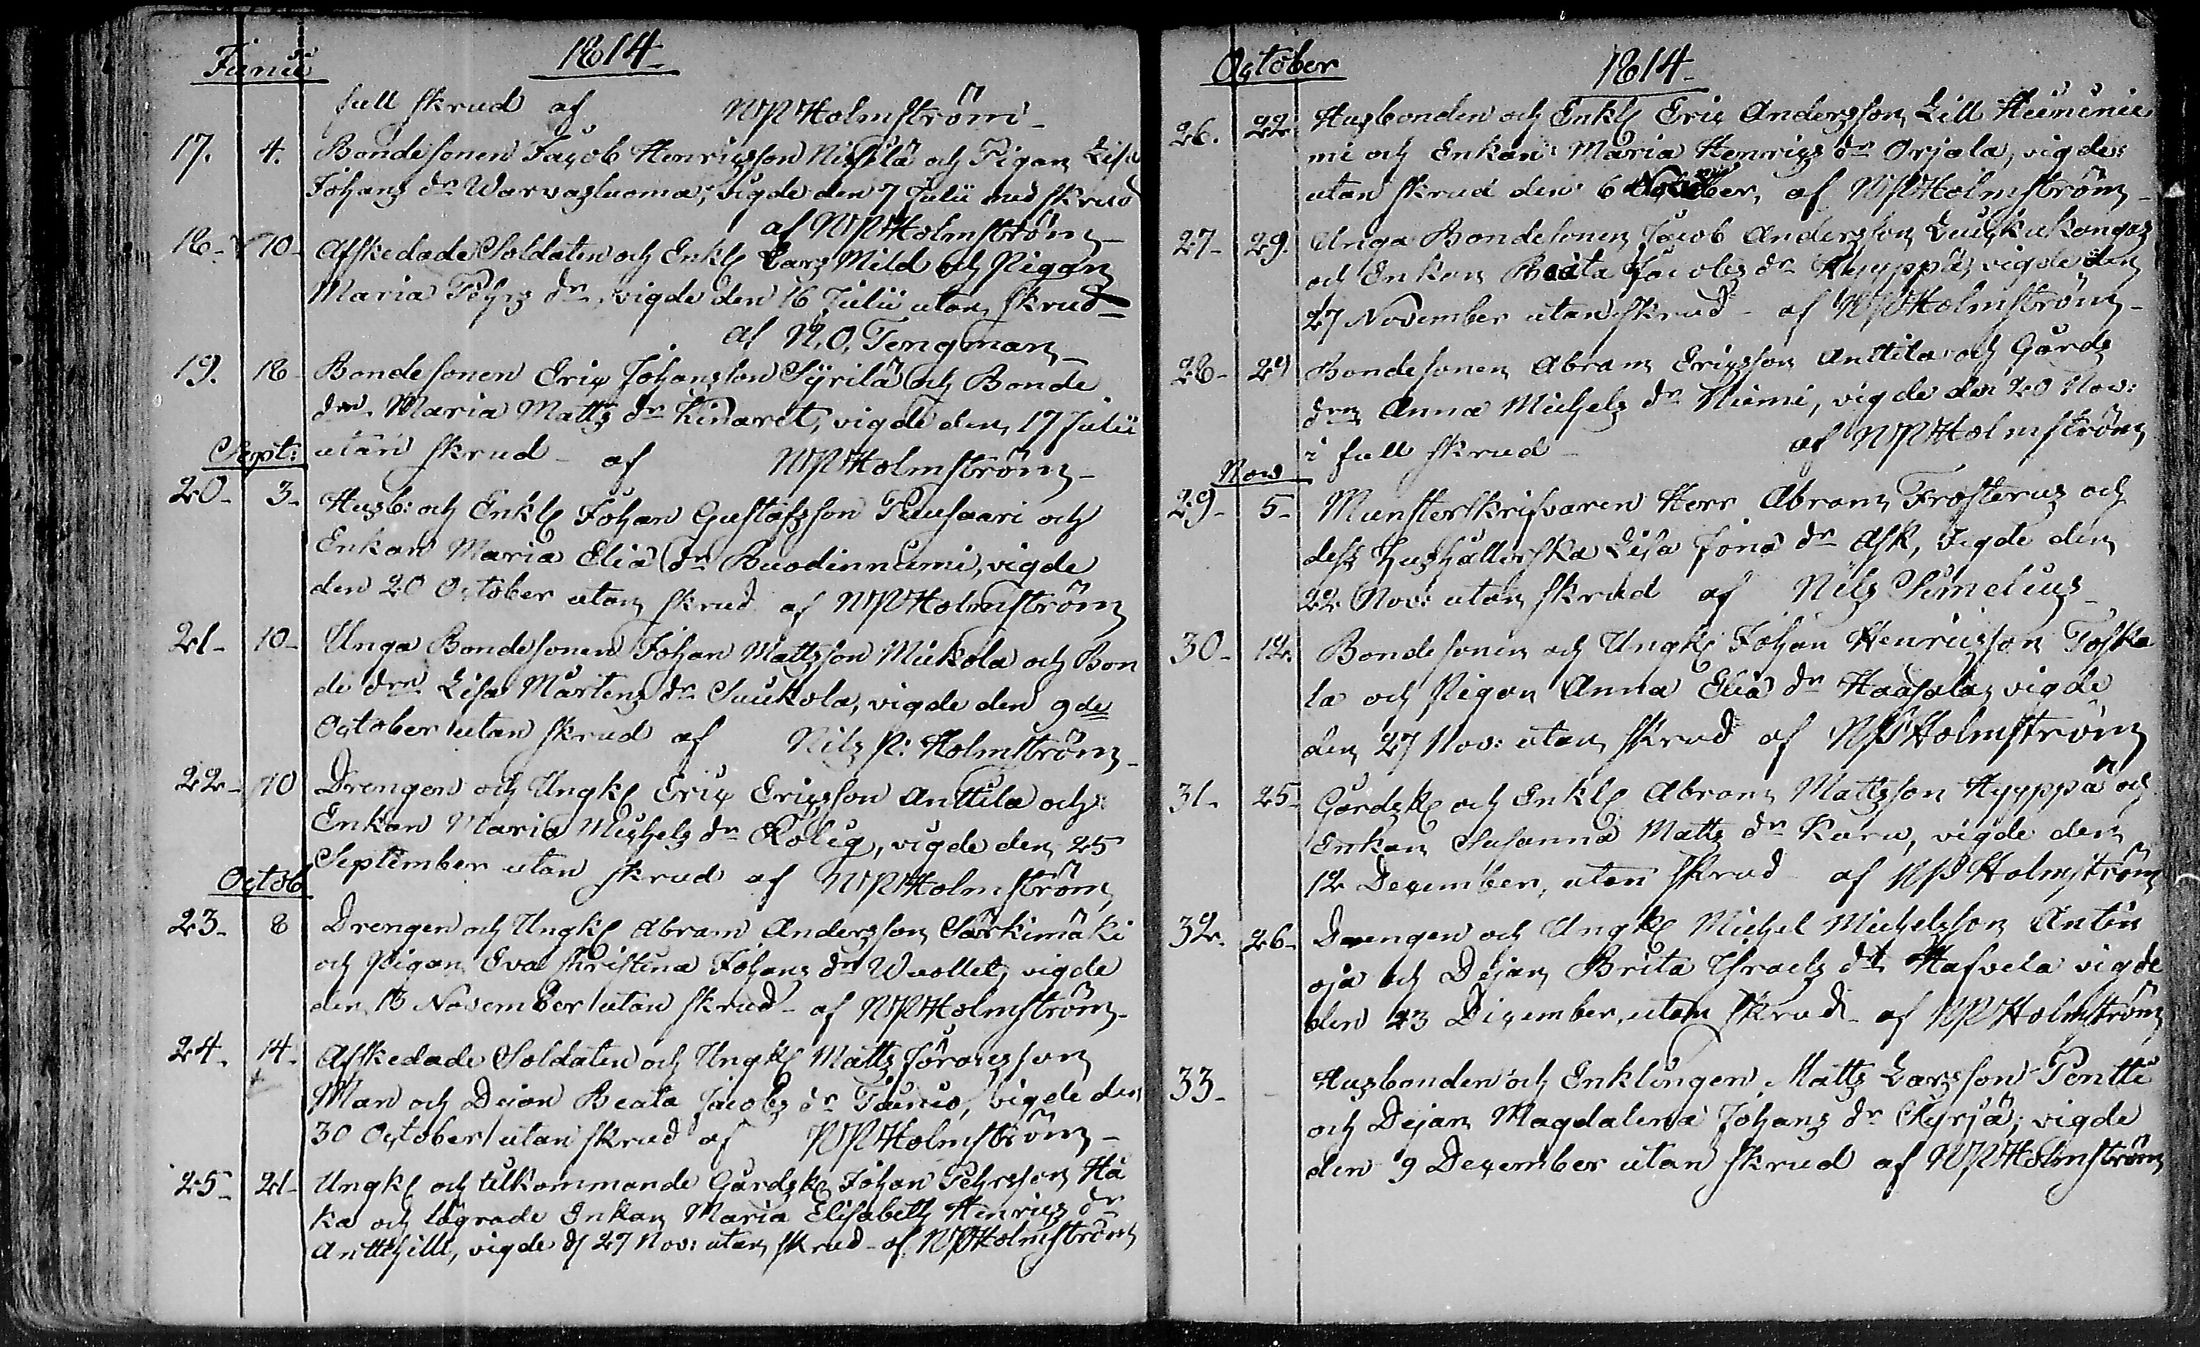 Junii 1814
full skrud af NPHolmström
17. 4. Bondesonen Jacob Henricsson Nissilä och Pigan Lisa
Johans dr Warvasluoma, vigde den 7 Julii med skrud
af NPHolmström
18. 10. Afskedade Soldaten och Enkl Lars Mild och Pigan
Maria Pehrs dr vigde den 16 Julii utan skrud
af N. O. Tengman
19. 18 Bondesonen Eric Johansson Syrilä och Bonde
dn. Maria Matts dr Kinaret, vigde den 17 Julii
utan skrud af NPHolmström
Sept:
20. 3. Husb: och Enkl Johan Gustafsson Puusaari och
Enkan Maria Elia dr Buodinniemi, vigde
den 20 October utan skrud af NPHolmström
21. 10. Unga Bondesonen Johan Mattsson Mickola och Bon
de drn Lisa Mårtens dr Suukola, vigde den 9de
October utan skrud af Nils P: Holmström
22. 10 Drengen och Ungkl Eric Ericsson Anttila och
Enkan Maria Michels dr Rolig, vigde den 25
September utan skrud af NPHolmström
Octob
23. 8 Drengen och Ungkl Abram Andersson Särkimäki
och Pigan Eva Christina Johans dr Wuollet, vigde
den 13 November utan skrud af NPHolmström
24. 14. Afskedade Soldaten och Ungkl Matts Jöransson
Man och Dejan Beata Jacobs dr Junio, vigde den
30 October utan skrud af NPHolmström
25. 21. Ungkl och tilkommande Gårdskl Johan Pehrsson Ha
ka och lägrade Enkan Maria Elisabeth Henrics dr
Antthilli, vigde d 27 Nov: utan skrud af NPHolmström
October 1814
26. 22. Husbonden och Enkl Eric Andersson Lill Heinimie
mi och Enkan Maria Henrics dr Orjala, vigde
utan skrud den 6 November, af NPHolmström
27. 29. Unga Bondesonen Jacob Andersson Luuskukangas
och Enkan Beata Jacobs dr Hyyppä, vigde den
27 November utan skrud af NPHolmström
28. 29 Bondesonen Abram Ericsson Anttila och Gårds
drn Anna Michels dr Niemi, vigde den 20 Nov:
i full skrud af NPHolmström
Nov
29. 5. Munsterskrifvaren Herr Abram Frosterus och
dess hushållerska Lisa Jona dr Ask, vigde den
22 Nov: utan skrud af Nils Simelius
30. 12. Bondesonen och Ungkl Johan Henricsson Toska
la och Pigan Anna Elia dr Haapala, vigde
den 27 Nov: utan skrud af NPHolmström
31. 25. Gårdskl och Enkl Abram Mattsson Hyyppä och
Enkan Susanna Matts dr Karu, vigde den
12 December, utan skrud af NPHolmström
32. 26. Drengen och Ungkl Michel Michelsson Antin
oja och Dejan Brita Israels dr Hafvela vigde
den 23 December, utan skrud af NPHolmström
33. Husbonden och Enklingen Matts Larsson Pentti
och Dejan Magdalena Johans dr Kyrjä, vigde
den 9 December utan skrud af NPHolmström